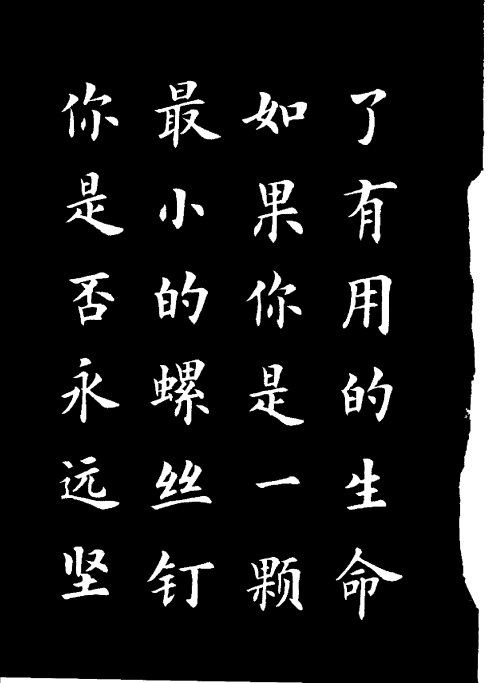 了有用的生命
如果你是一颗
最小的螺丝钉
你是否永远坚